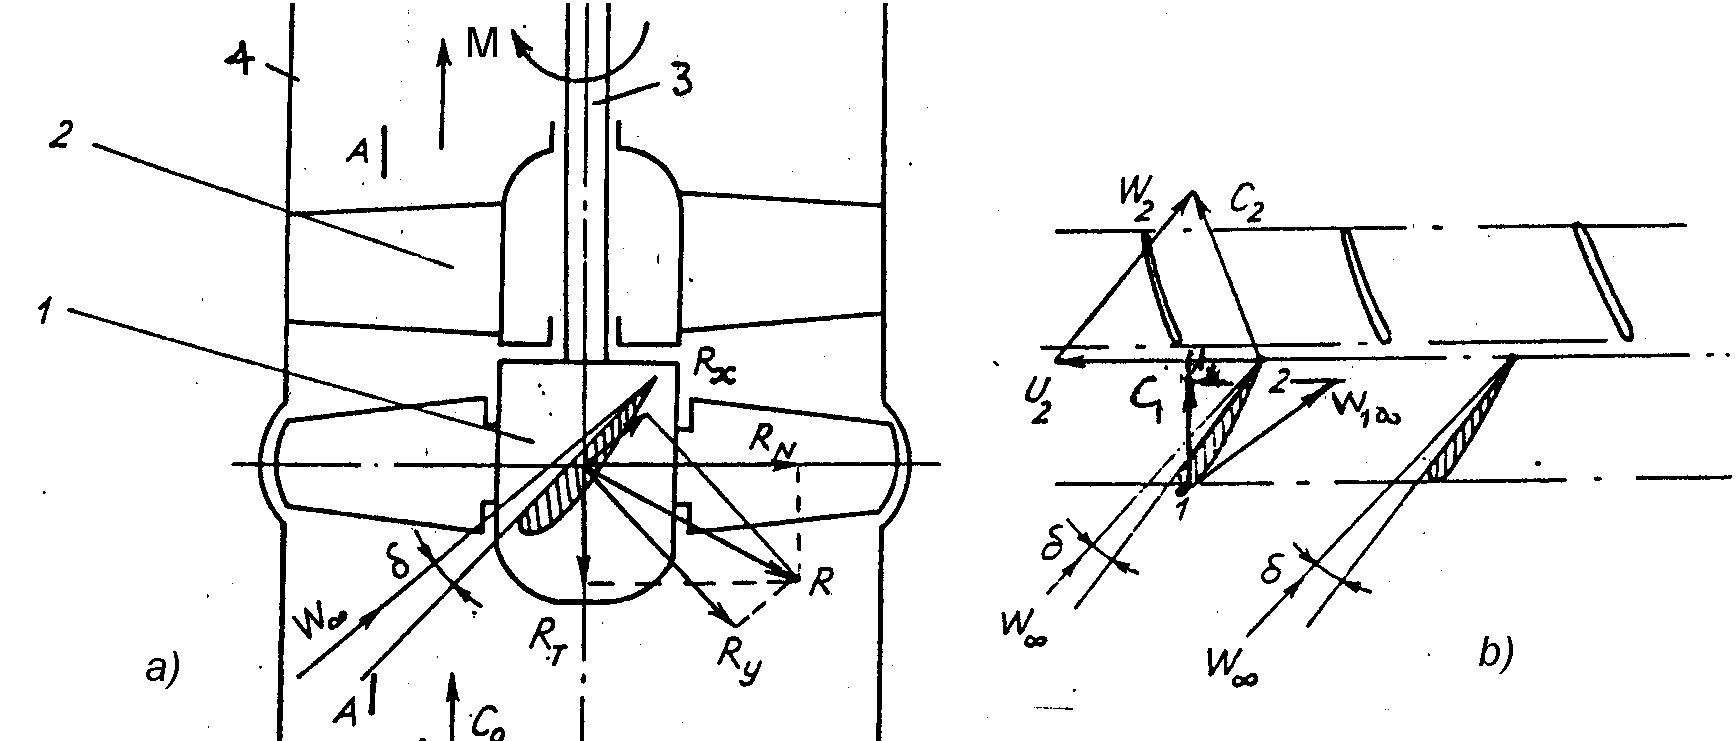 4
M
3
2
A
1
Rx
RN
δ
W∞
R
RT
Ry
a)
A
C0
W2
C2
U2
C1
2
W1∞
1
δ
δ
W∞
W∞
b)